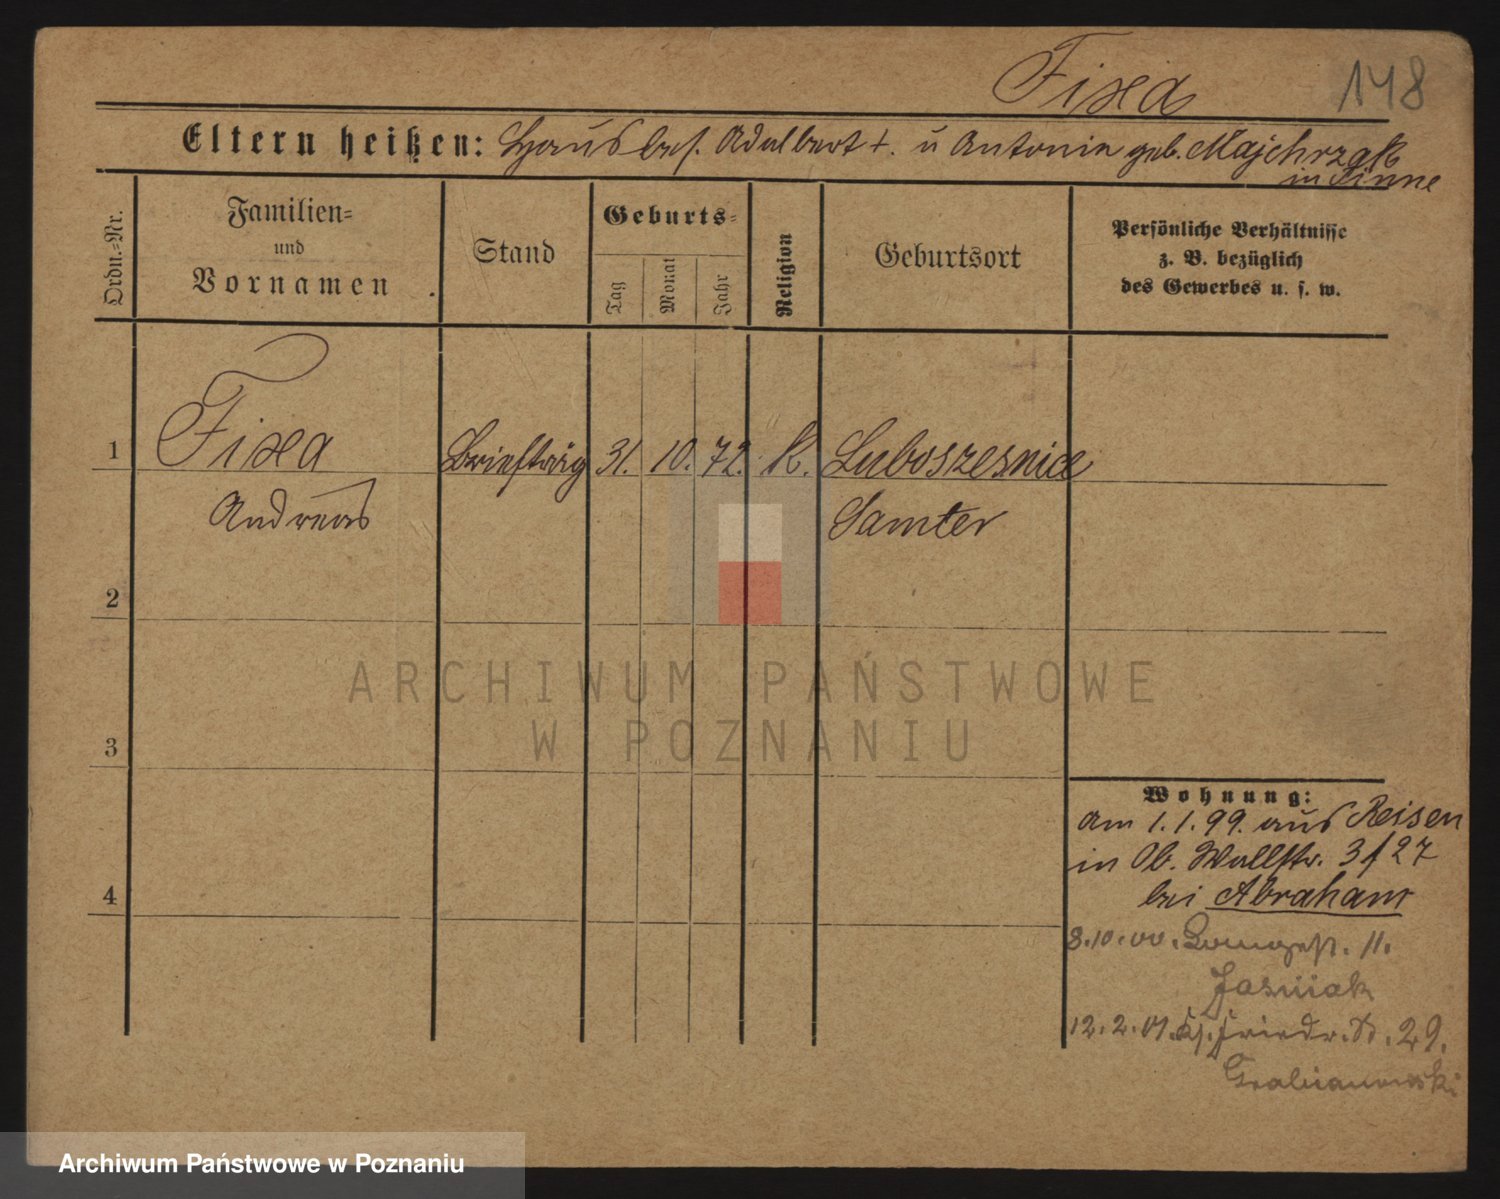 Fixa
148
Eltern heißen: Hausbes. Adalbert +. u Antonie geb. Majchrzak
in Pinne
Ordn.-Nr.
Familien-
und
Vornamen
Stand
Geburts-
Tag
Monat
Jahr
Religion
Geburtsort
Persönliche Verhältnisse
z. B. bezüglich
des Gewerbes u. s. w.
1 Fixa Briefträg 31. 10. 72. K. Luboszesnice
Andreas Samter
2
ARCHIWUM PAŃSTWOWE
W POZNANIU
3
Wohnung:
am 1.1.99. aus Reisen
in Ob. Wallstr. 3 / 27
bei Abraham
4
8.10.00. 11.
Jasniak
12.2.01. Friedr. St. 29.
Grabianowski
Archiwum Państwowe w Poznaniu